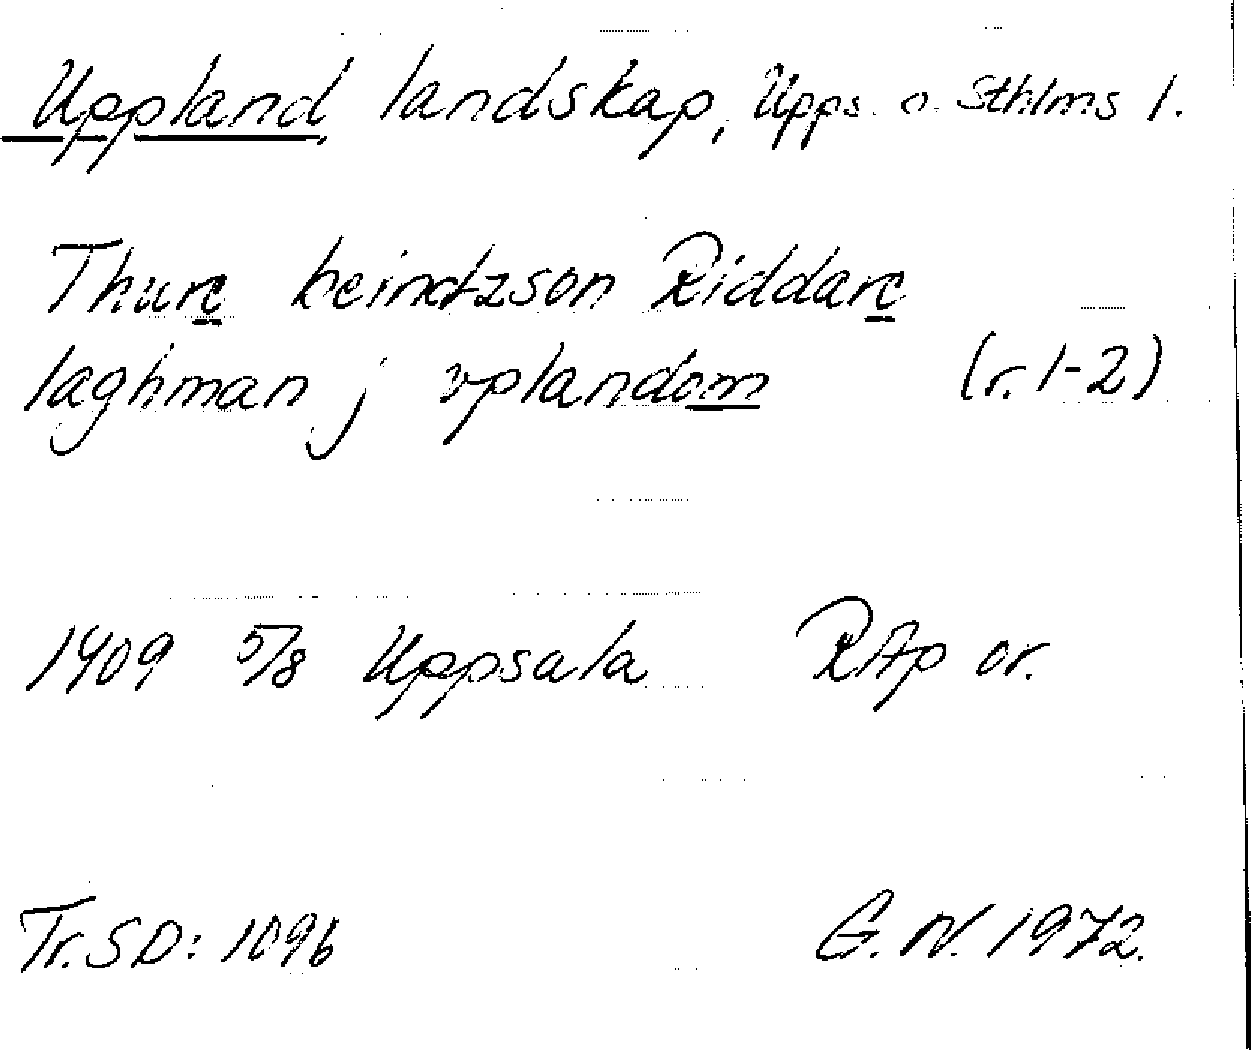 Uppland landskap, Upps. o. Sthlms l.
Thure beindtzson Riddare
laghman j vplandom (r. 1-2)
1409 5/8 Uppsala RAp or.
Tr. SD: 1096 G. N. 1972.